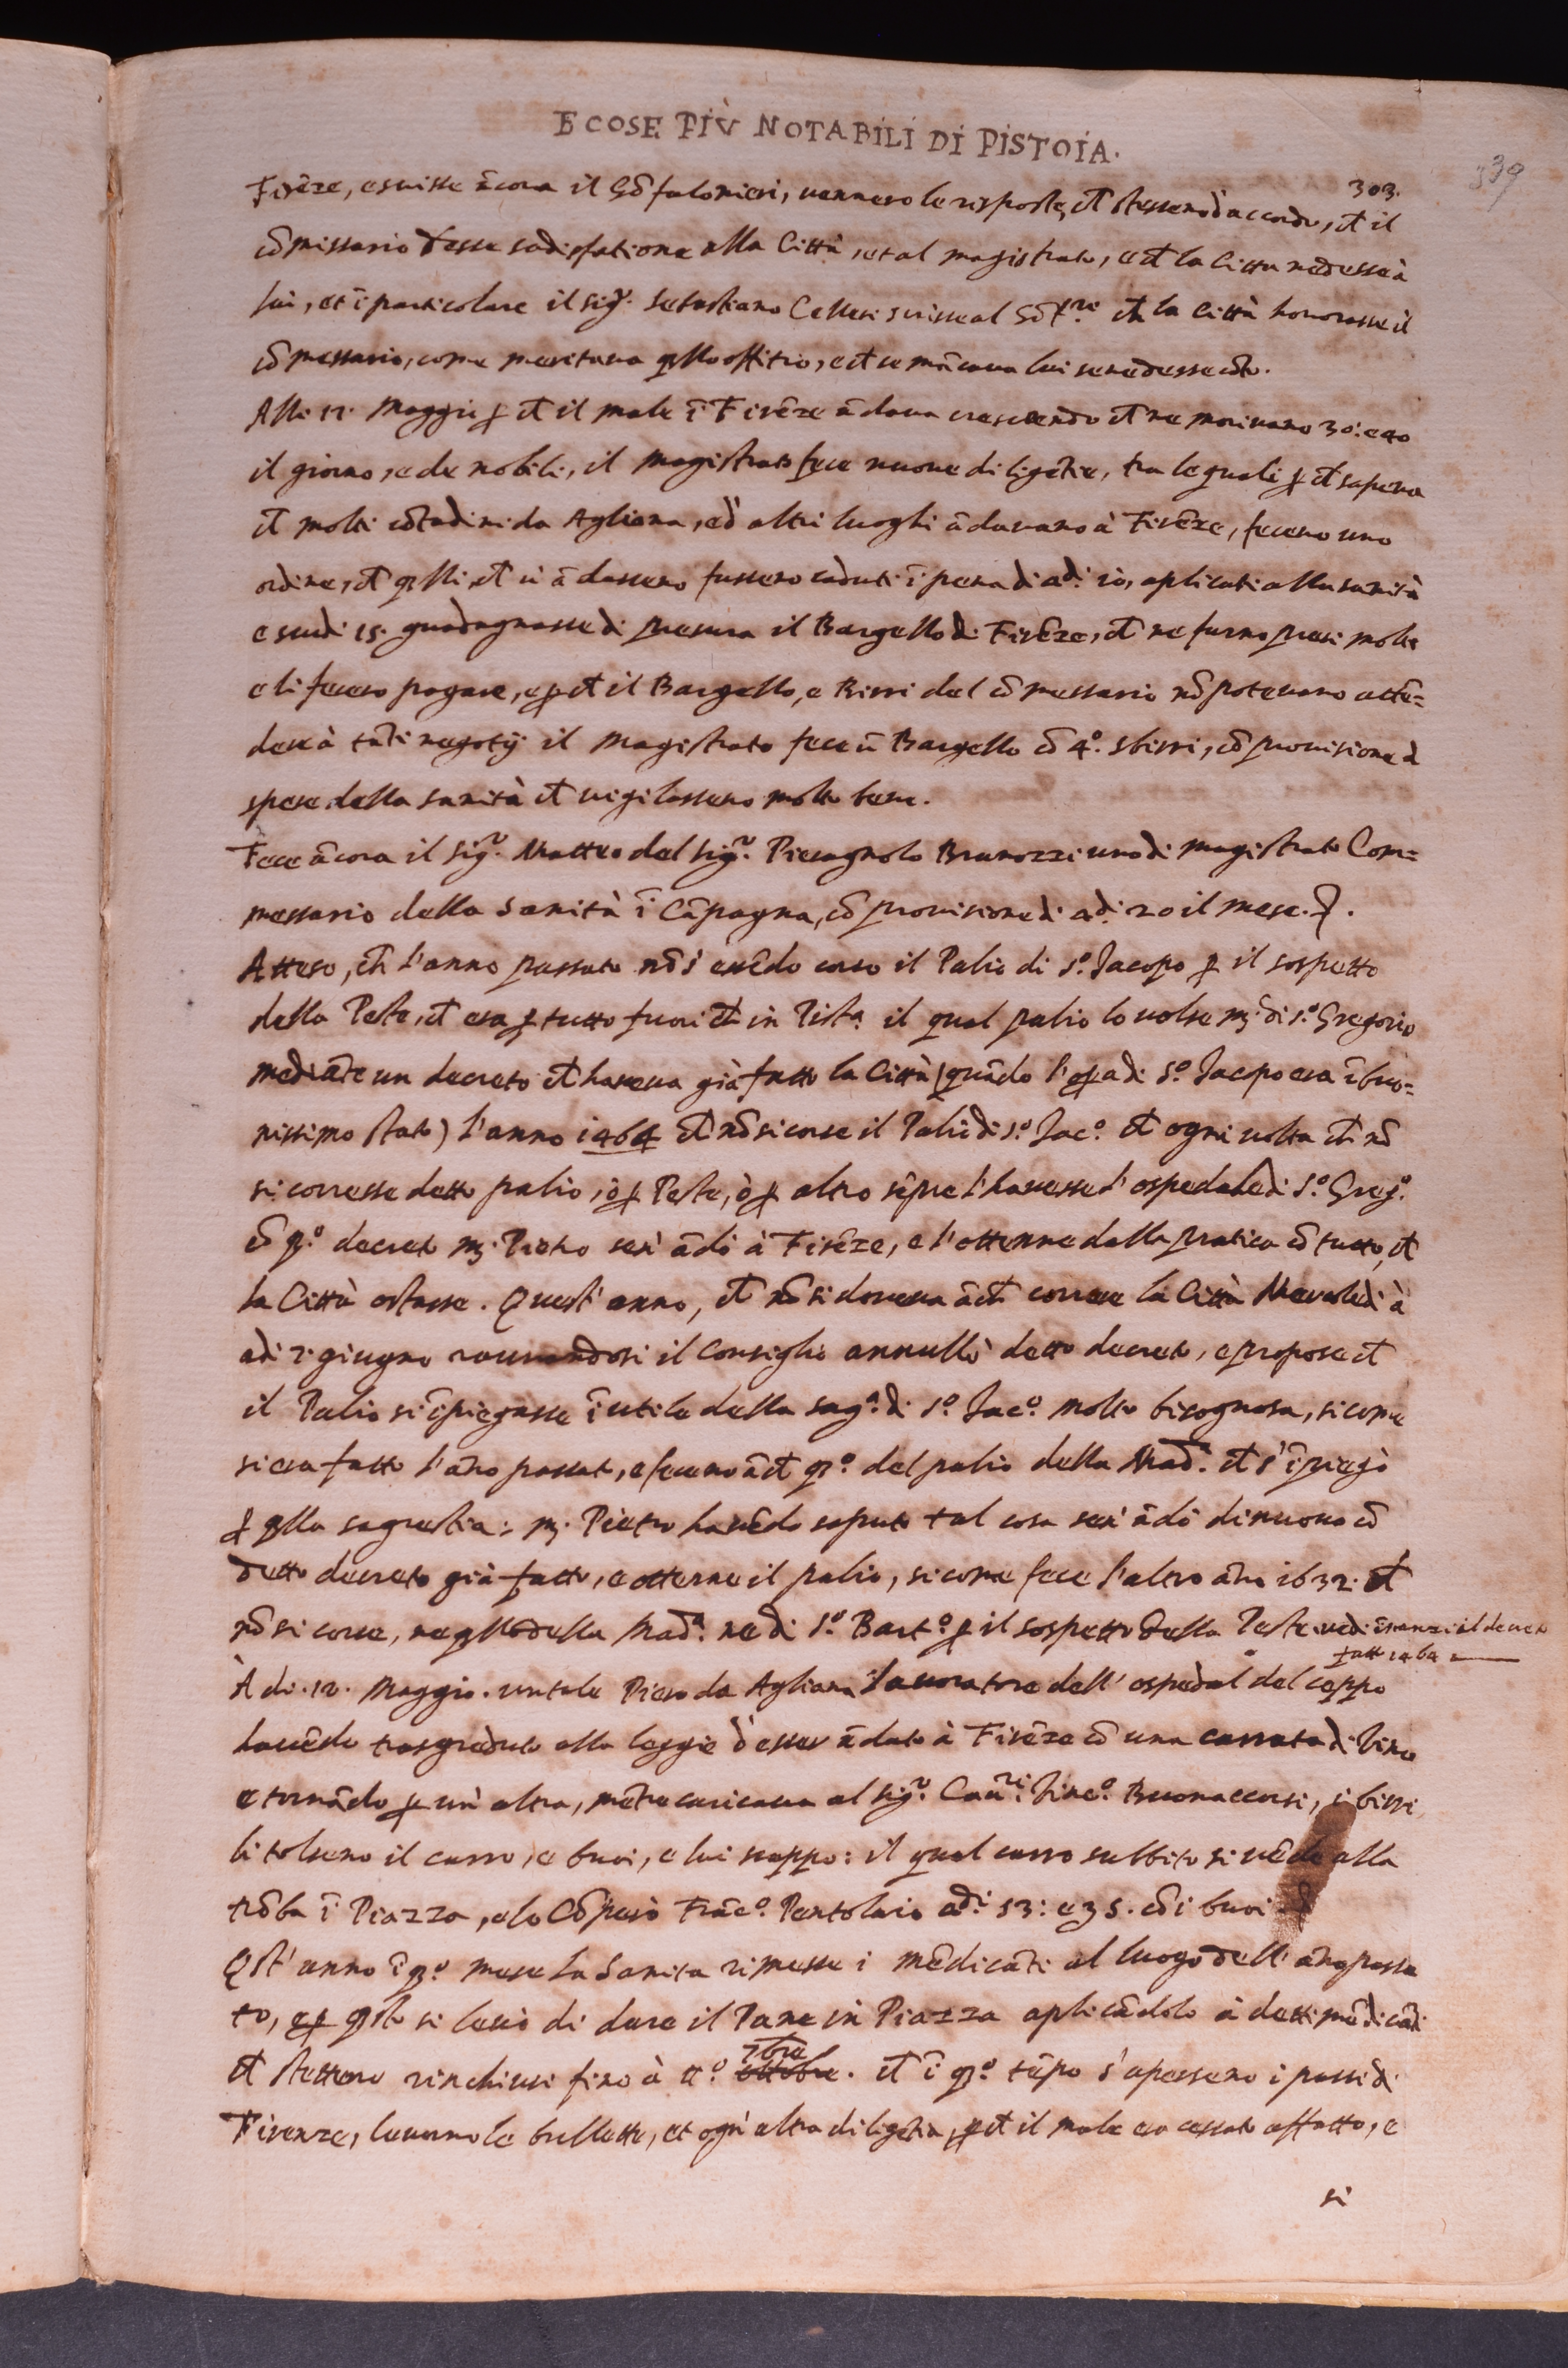 E COSE PIÙ NOTABILI DI PISTOIA.
303.
339
Firēze, e scrisse ācora il Gōfalonieri, vennero le risposte, ch̄ stessero d'accordo, ch̄ il
cōmissario desse sadisfatione alla Città, et al magistrato, e ch̄ la Città ne desse à
lui, et ī particolare il sig.r Sebastiano Cellesi scrisse al Gōf.re ch̄ la Città honorasse il
cōmessario, come meritava q̄llo offitio, e ch̄ se mācava lui se ne desse cōto.
Alli 12. Maggio ꝑ ch̄ il male ī Firēze ādava crescendo ch̄ ne morivano 30: e 40
il giorno, e de nobili, il Magistrato fece nuove diligētie, tra le quali ꝑ ch̄ sapeva
ch̄ molti cōtadini da Agliana, ed altri luoghi ādavano à Firēze, feceno uno
ordine, ch̄ q̄lli ch̄ vi ādasseno fusseno caduti ī pena di adi 10, aplicati alla sanità
e scudi 15. guadagnasse di presura il Bargello di Firēze, ch̄ ne furno presi molti
e li fecero pagare, e ꝑ ch̄ il Bargello, e Birri del cōmessario nō potevano attē=
dere à tāti negotij il Magistrato fece ū Bargello cō 4.o sbirri, cō provisione à
spese della sanità ch̄ vigilasseno molto bene.
Fece ācora il sig.r Matteo del sig.r Pieragnolo Brunozzi uno di magistrato Com=
messario della Sanità ī Cāpagna, cō provisione di adi 20 il mese.
Atteso, ch̄ l'anno passato nō s'essēdo corso il Palio di S.o Jacopo ꝑ il sospetto
della Peste, ch̄ era ꝑ tutto fuori ch̄ in Pist.a il qual palio lo volse m̄. di S.o Gregorio
mediāte un decreto ch̄ haveva già fatto la Città (quādo l'oꝑa di S.o Jacopo era ī buo=
nissimo stato) l'anno 1464 ch̄ nō si corse il Palio di S.o Jac.o ch̄ ogni volta ch̄ nō
si corresse detto palio, ò ꝑ Peste, ò ꝑ altro sēpre l'havesse l'ospedale di S.o Greg.o
cō q̄.o decreto m̄. Pietro seri ādò à Firēze, e l'ottenne dalla pratica cō tutto, ch̄
la Città ostasse. Quest'anno, ch̄ nō si doveva ācħ correre la Città Mercoledì à
adi 2. giugno raunandosi il Consiglio annullò detto decreto, e propose ch̄
il Palio si īpiegasse ī utile della sag.a di S.o Jac.o molto bisognosa, si come
si era fatto l'āno passato, e feceno ācħ q̄.o del palio della Mad.a ch̄ s'īpiegò
ꝑ q̄lla sagrestia: m̄. Pietro havēdo saputo tal cosa seri ādò di nuovo cō
detto decreto già fatto, e ottenne il palio, si come fece l'altro āno 1632. ch̄
nō si corse, ne q̄llo della Mad.a ne di S.o Bart.o ꝑ il sospetto della Peste. vedi īnanzi il decreto
fatto 1464
À di. 12. Maggio. un tale Piero da Agliana lavoratore dell'ospedal del ceppo
havēdo trasgreduto alla leggie d'esser ādato à Firēze cō una carrata di Vino
e tornādo ꝑ un'altra, mētre caricava al sig.r Cav.ri Vinc.o Buonaccorsi, i birri
li tolseno il carro, e buoi, e lui scappò: il qual carro subbito si vēdé alla
trōba ī Piazza, e lo Cōperò Frāc.o Pantolaio adi 53: e 35. cō i buoi
Q̄st'anno ī q̄.o mese la Sanita rimesse i mēdicāti al luogo dell'āno passa
to, e ꝑ q̄sto si lasciò di dare il Pane in Piazza aplicādolo à detti mēdicāti
ch̄ stetteno rinchiusi fino à tt.o ottobre 7bre. ch̄ ī q̄.o tēpo s'aperseno i passi di
Firenze, levorno le bullette, et ogni altra diligētia, ꝑ ch̄ il male era cessato affatto, e
si